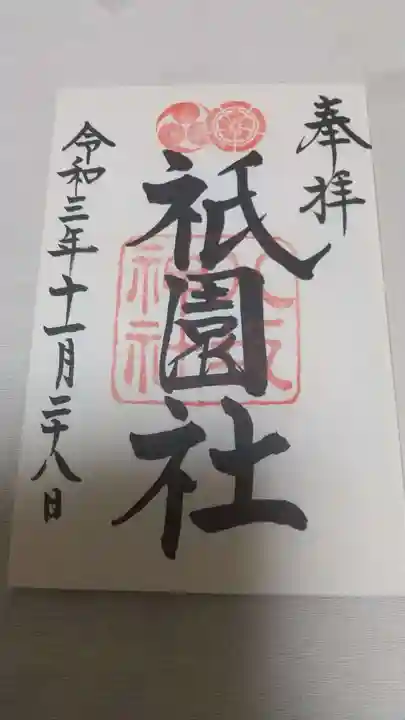 奉拝
祇園社
八坂神社
令和三年十一月二十八日